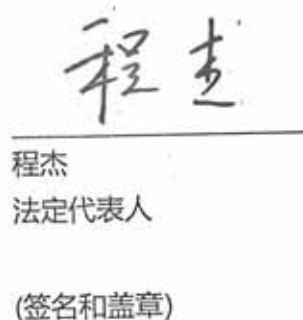 程杰
程杰
法定代表人
(签名和盖章)